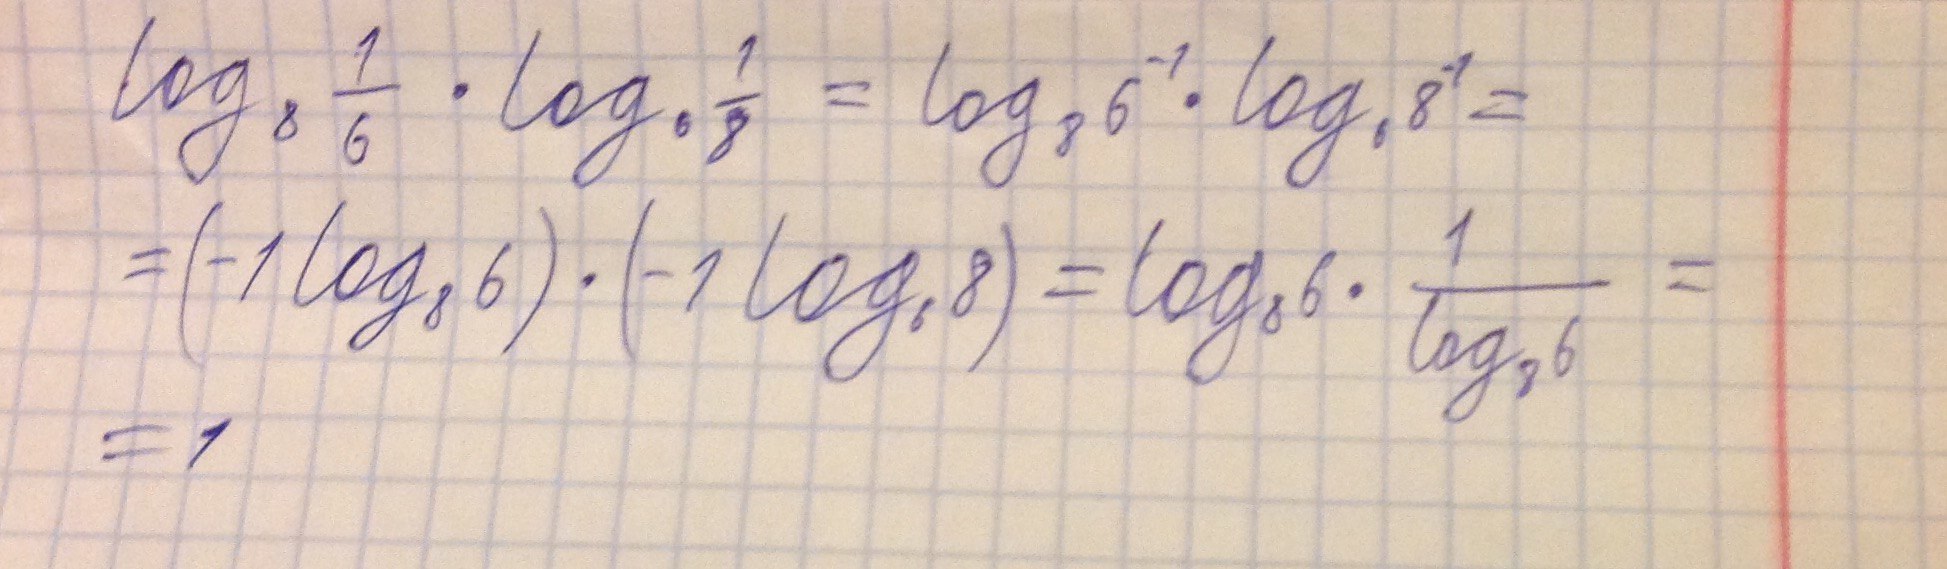 log₈ 1/6 · log₆ 1/8 = log₈ 6⁻¹ · log₆ 8⁻¹ =
= (-1 log₈ 6) · (-1 log₆ 8) = log₈ 6 · 1/log₈ 6 =
= 1